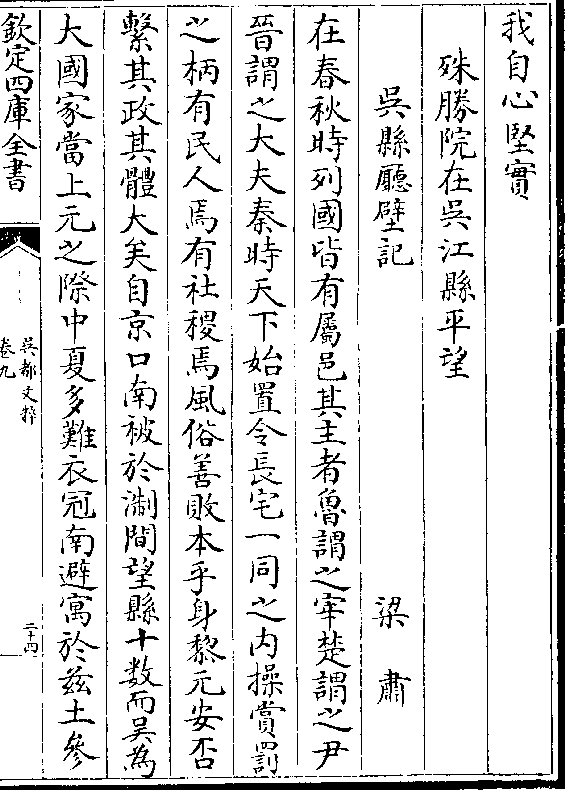 我自心堅實
殊勝院在吳江縣平望
吳縣廳壁記 梁肅
在春秋時列國皆有屬邑其主者魯謂之宰楚謂之尹
晉謂之大夫秦時天下始置令長宅一同之内操賞罰
之柄有民人焉有社稷焉風俗善敗本乎身黎元安否
繫其政其體大矣自京口南被於淛間望縣十數而吳為
大國家當上元之際中夏多難衣冠南避寓於兹土參
欽定四庫全書
吳都文粹
卷九
二十四